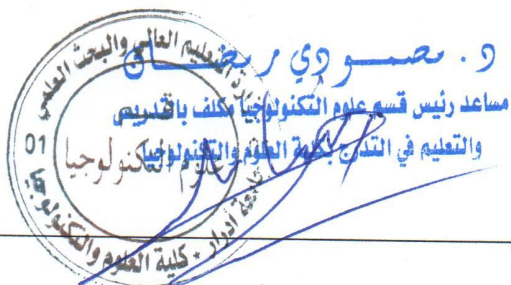 د. مصمودي رمضان
مساعد رئيس قسم علوم التكنولوجيا مكلف بالتدريس
والتعليم في التدرج بكلية العلوم والتكنولوجيا
وزارة التعليم العالي والبحث العلمي
01
علوم التكنولوجيا
جامعة أدرار - كلية العلوم والتكنولوجيا